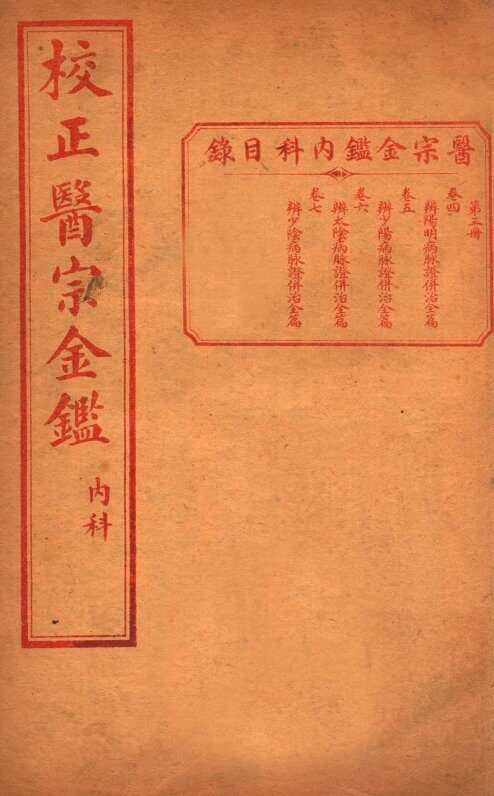 校正醫宗金鑑
內科
醫宗金鑑內科目錄
第三冊
卷四
辨陽明病脉證併治全篇
卷五
辨少陽病脉證併治全篇
卷六
辨太陰病脉證併治全篇
卷七
辨少陰病脉證併治全篇